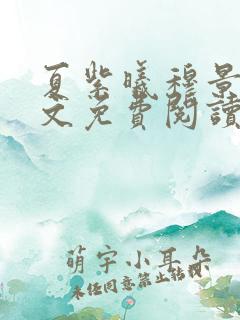 夏紫曦穆景
文免費閱讀
萌宇小耳朵
未经同意禁止转载